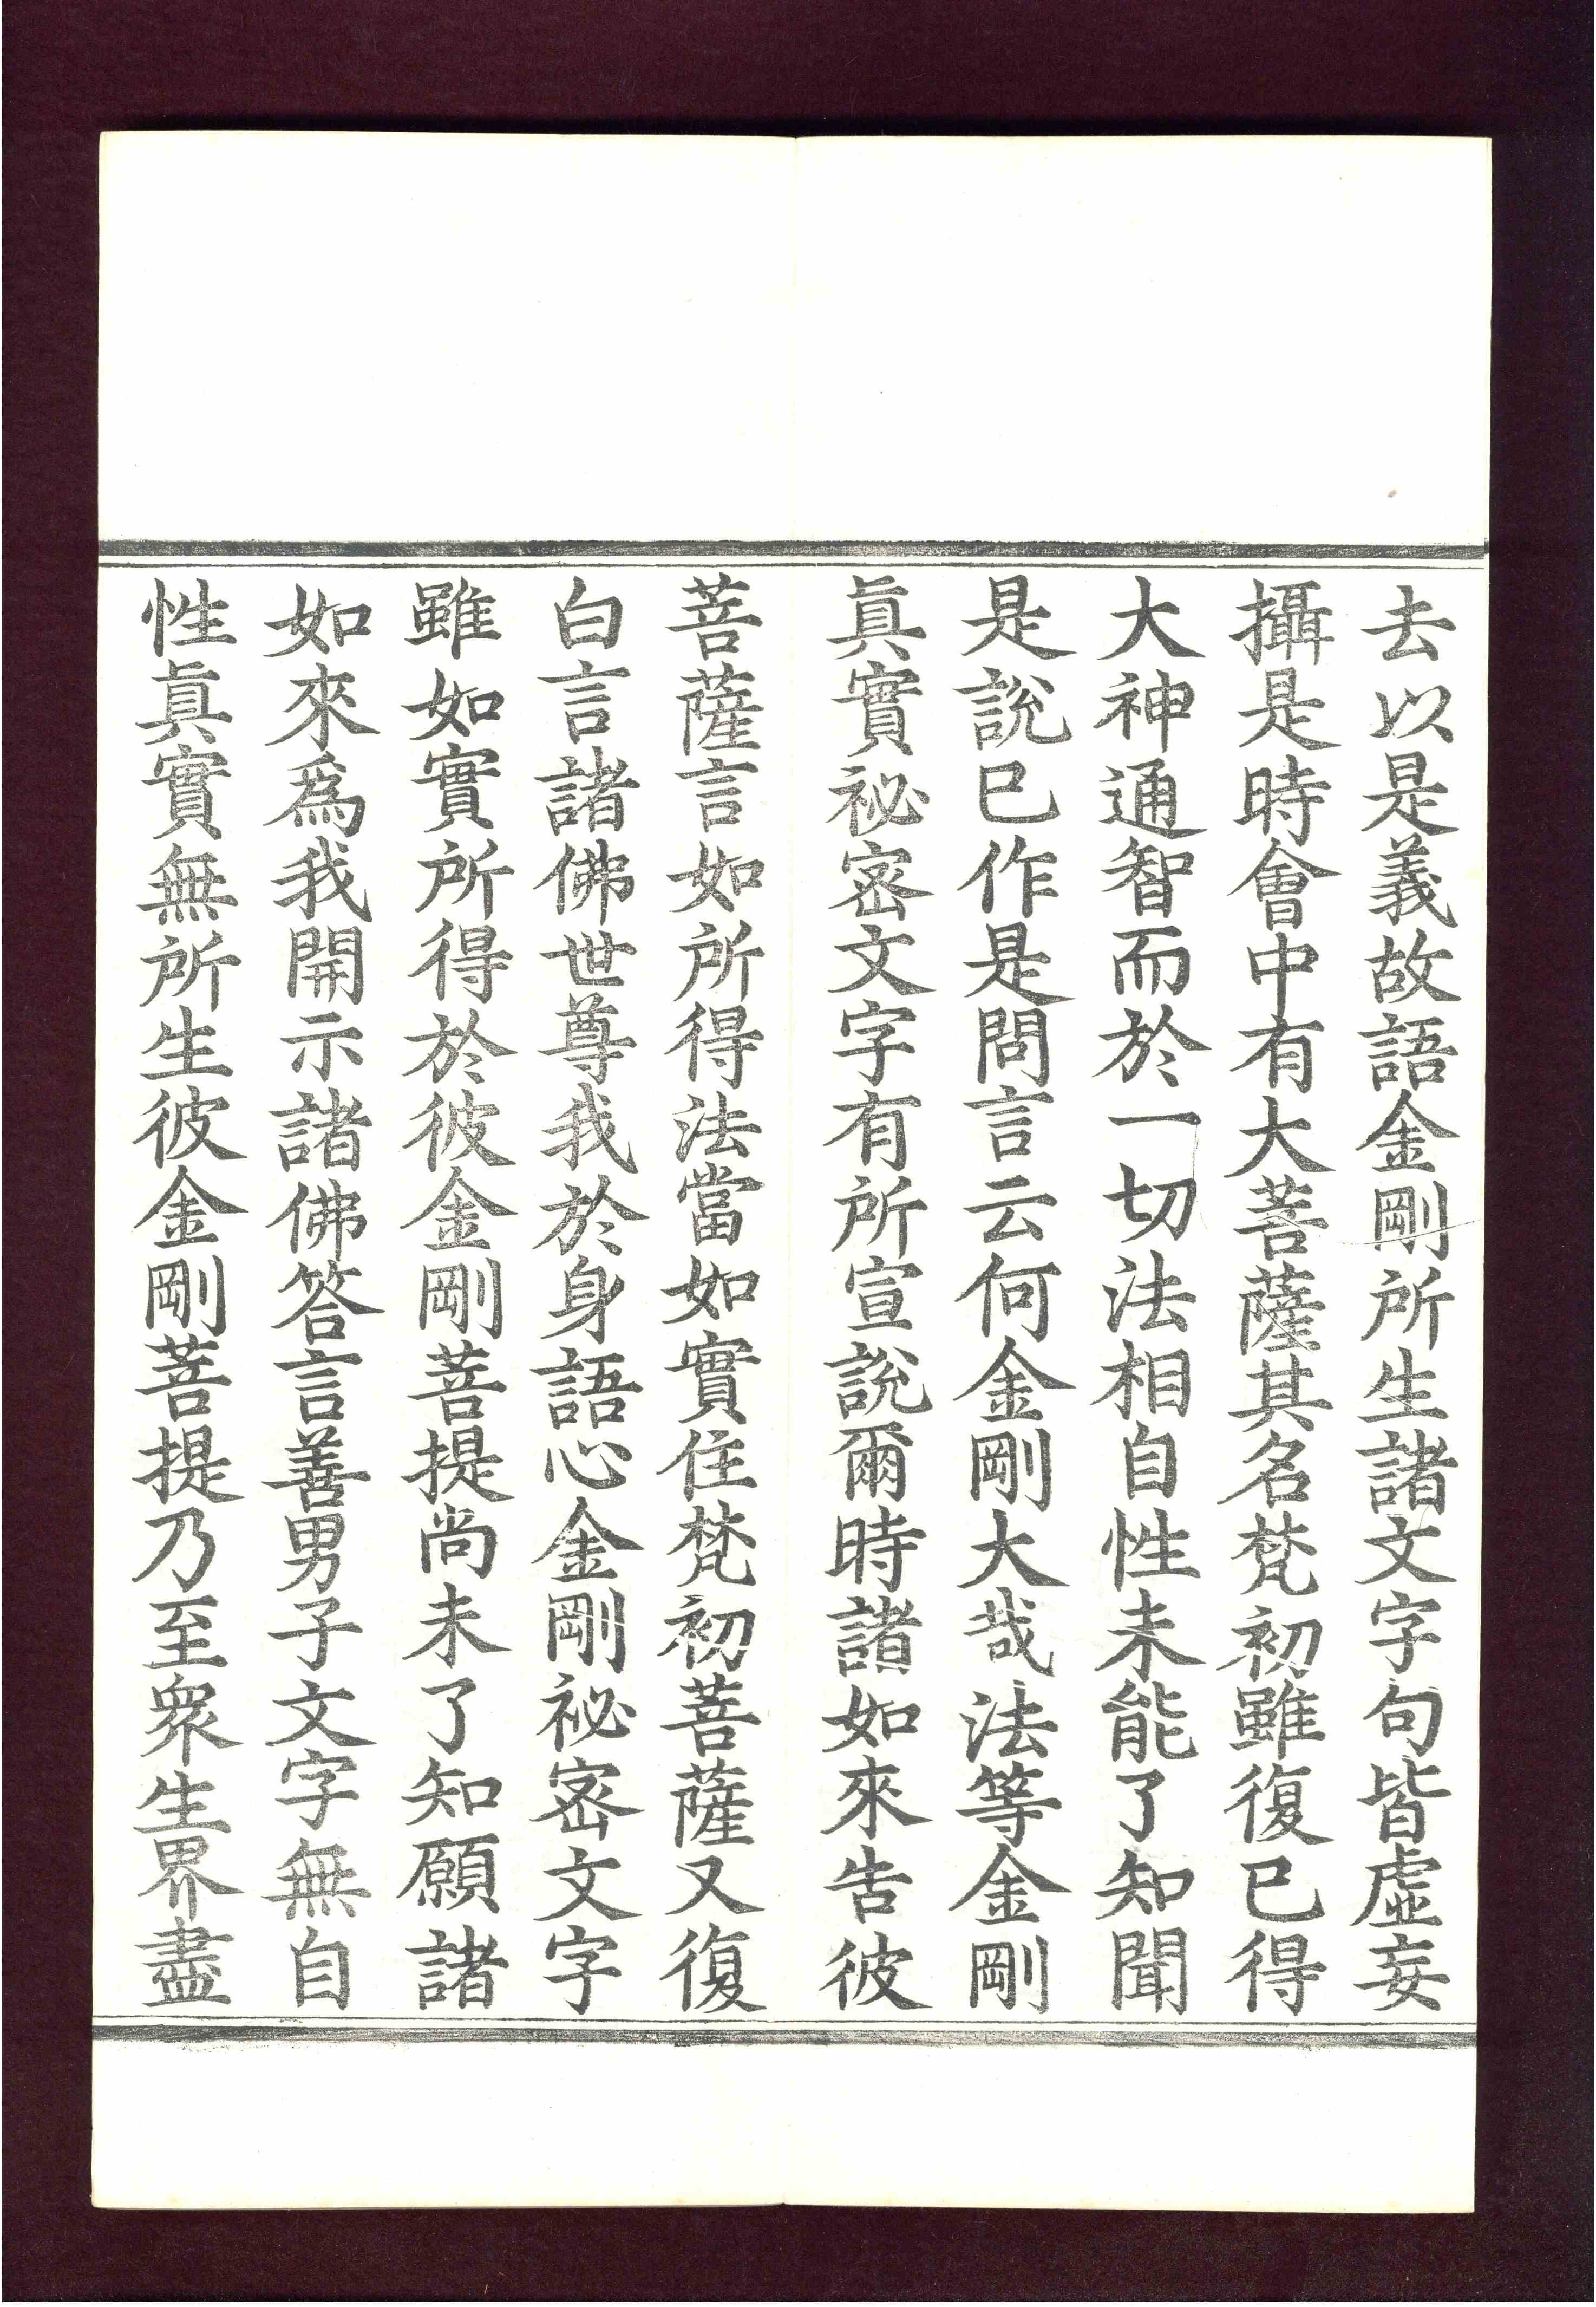 去以是義故語金剛所生諸文字句皆虛妄
攝是時會中有大菩薩其名梵初雖復已得
大神通智而於一切法相自性未能了知聞
是說已作是問言云何金剛大哉法等金剛
眞實祕密文字有所宣說爾時諸如來告彼
菩薩言如所得法當如實住梵初菩薩又復
白言諸佛世尊我於身語心金剛祕密文字
雖如實所得於彼金剛菩提尚未了知願諸
如來爲我開示諸佛答言善男子文字無自
性眞實無所生彼金剛菩提乃至衆生界盡